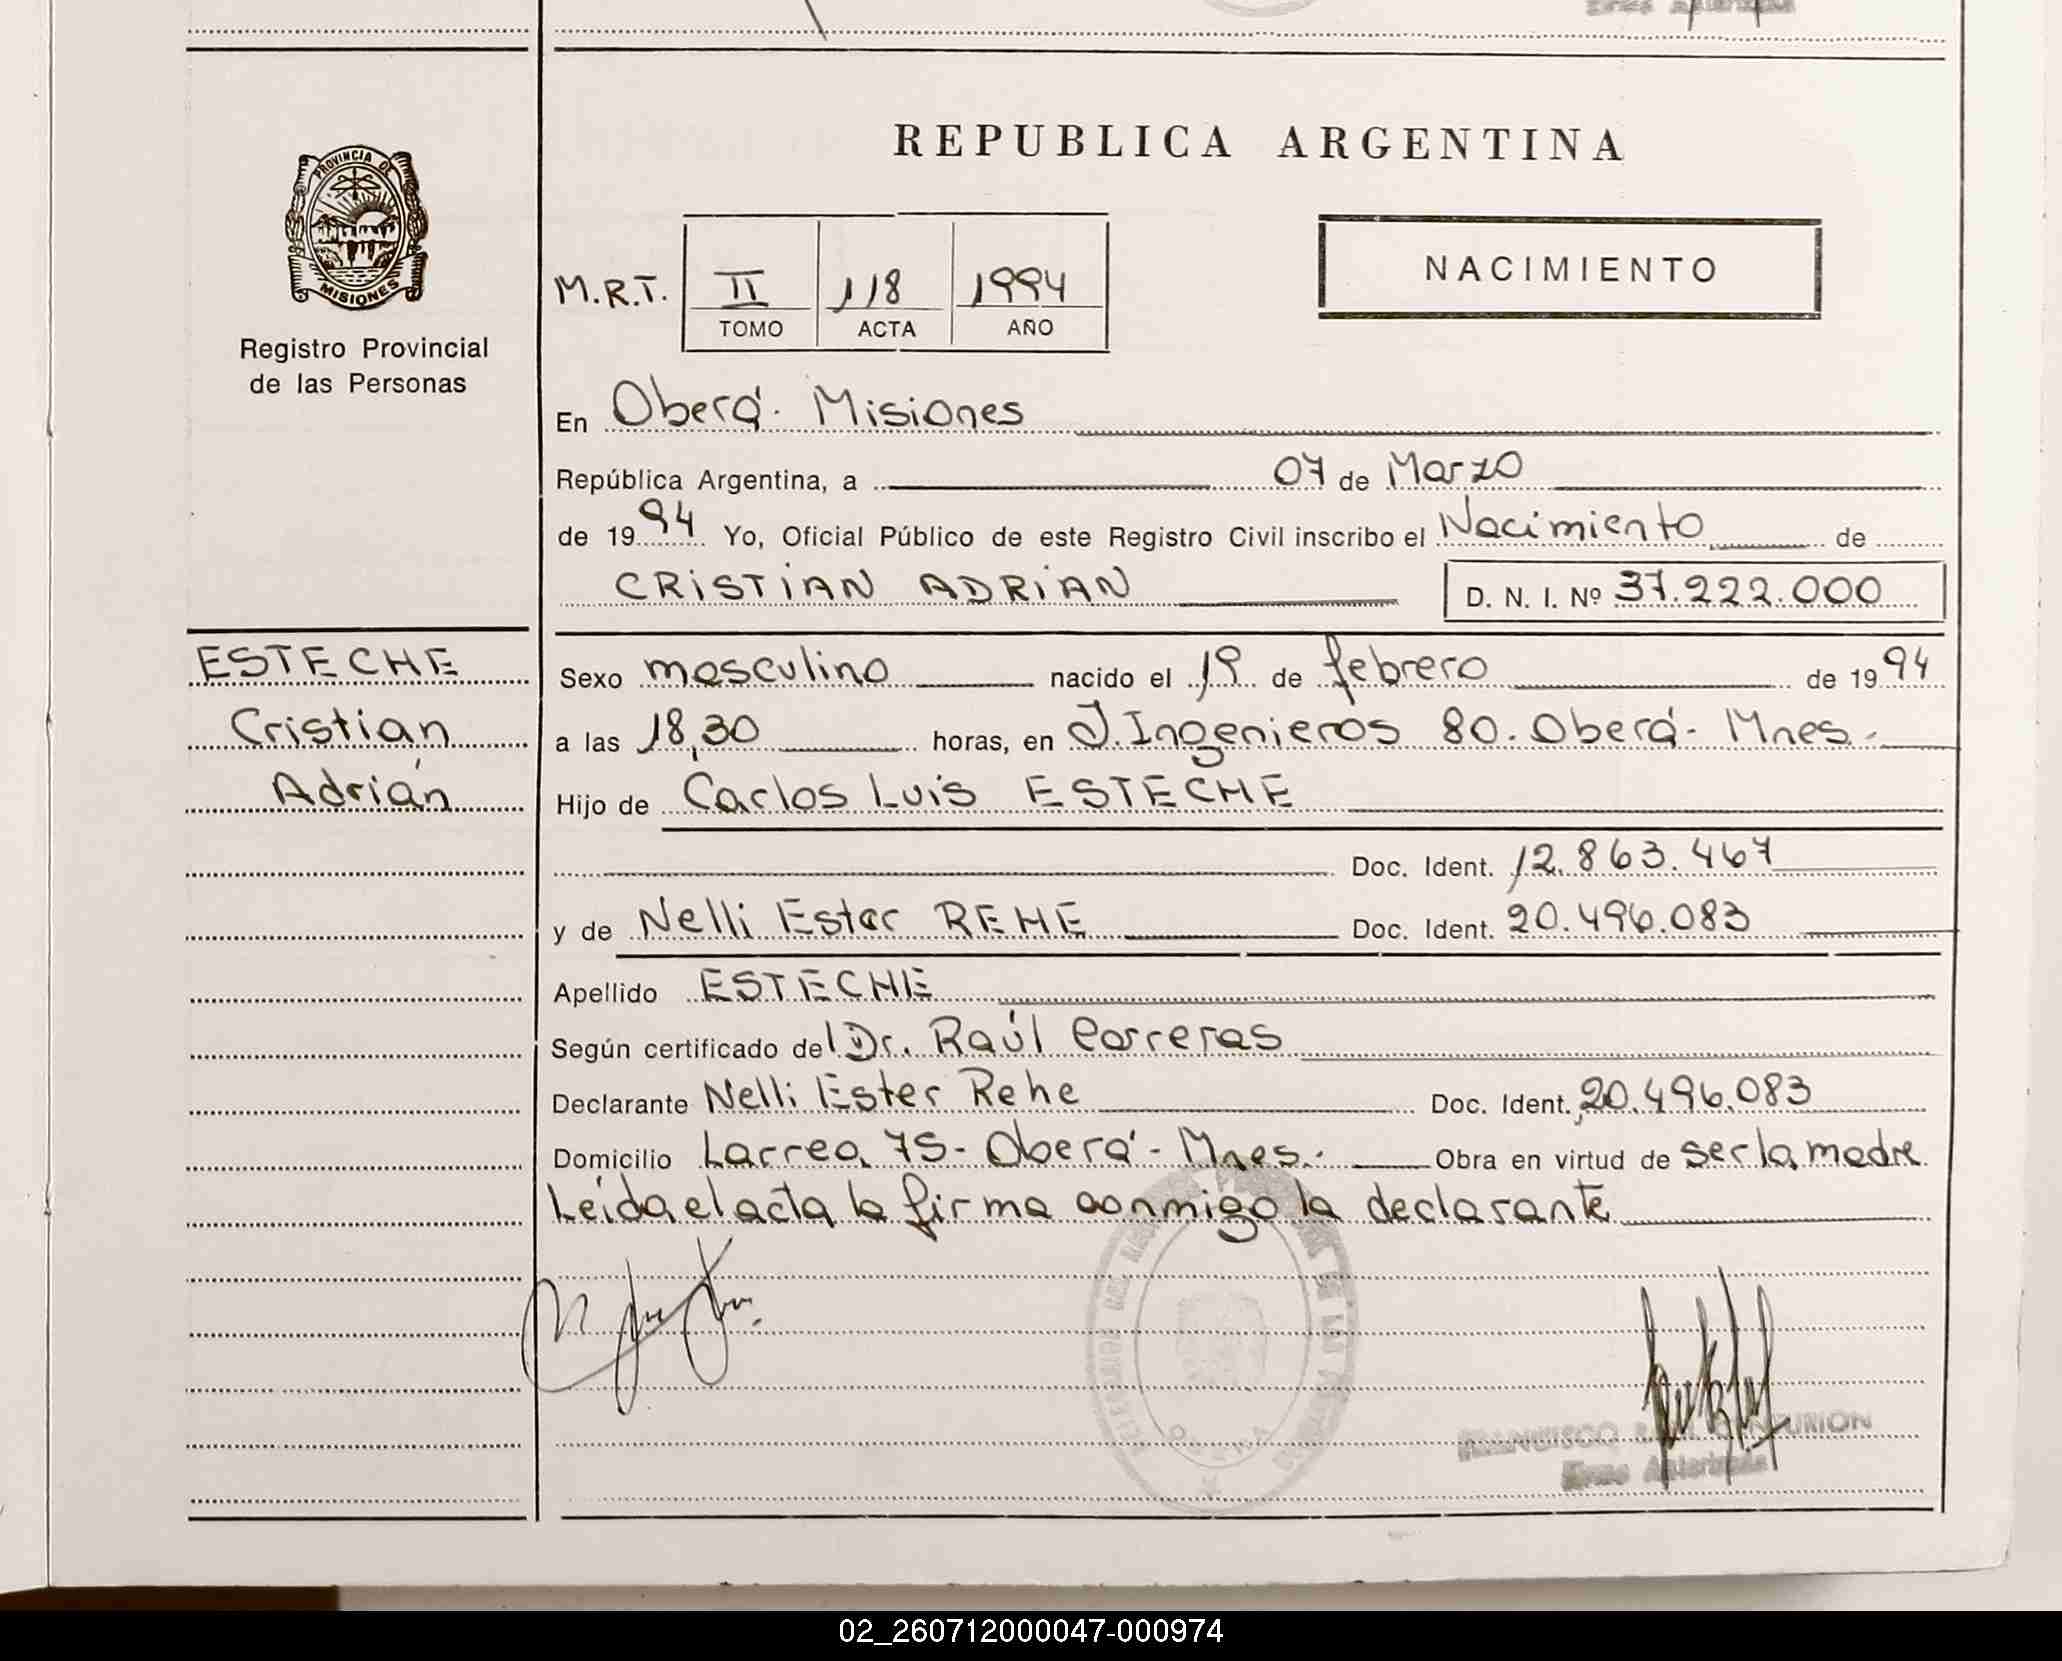 REPUBLICA ARGENTINA
PROVINCIA DE
MISIONES
Registro Provincial
de las Personas
M.R.T. II 118 1994
TOMO ACTA AÑO
NACIMIENTO
En Oberá. Misiones
República Argentina, a 07 de Marzo
de 1994 Yo, Oficial Público de este Registro Civil inscribo el Nacimiento de
CRISTIAN ADRIAN D. N. I. Nº 37.222.000
ESTECHE
Cristian
Adrián
Sexo masculino nacido el 19 de febrero de 1994
a las 18,30 horas, en J. Ingenieros 80. Oberá - Mnes.-
Hijo de Carlos Luis ESTECHE
Doc. Ident. 12.863.467
y de Nelli Ester REHE Doc. Ident. 20.496.083
Apellido ESTECHE
Según certificado del Dr. Raúl Carreras
Declarante Nelli Ester Rehe Doc. Ident. 20.496.083
Domicilio Larrea 75 - Oberá - Mnes.- Obra en virtud de ser la madre
Leída el acta la firma conmigo la declarante
FRANCISCO CENTURION
Firma Autorizada
02_260712000047-000974